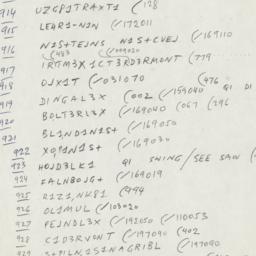 914 UZGP1TRAXT1 (128
915 LEAR1-N1N (✓172011
916 N1S+TEJNS N1S+CVEJ (✓169110
(483 (✓009020
917 1RTM3X 1CT3RD3RMONT (779
918 OJX1T (✓031070 (476
919 DINGAL3X (002 (✓159040 Q1 D1
920 BOLT3RL3X (✓169040 (067 (296
921 BL1ND1N1S+ (✓169050
922 (✓169030
923 HOJD3LK1 Q1 SWING/SEE SAW (
924 FALNBOJG+ (✓169019
925 R1Z1,NK81 (494
926 OL1MUL (✓103020
927 FEJNDL3X (✓192050 (✓110053
928 C1D3RVONT (✓197090 (402
929 (✓197090